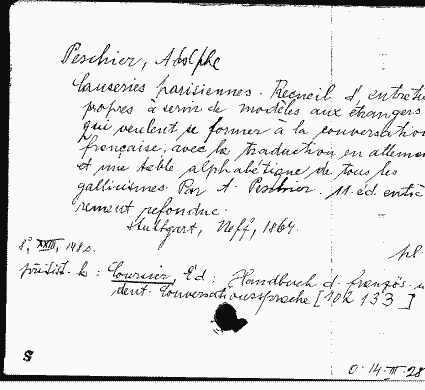 Peschier, Adolphe
Causeries parisiennes. Recueil d'entreti
propres à servir de modèles aux étrangers
qui veulent se former à la conversation
française, avec la traduction en alleman
et une table alphabétique de tous les
gallicismes. Par A. Peschier. 11. éd. entiè
rement refondue.
Stuttgart, Neff, 1864.
8°, XXIII, 148 s.
pl.
přivát. k: Coursier, Ed: Handbuch d. französ. u
deut. Conversationssprache [10 K 133]
S
0-14-III-28